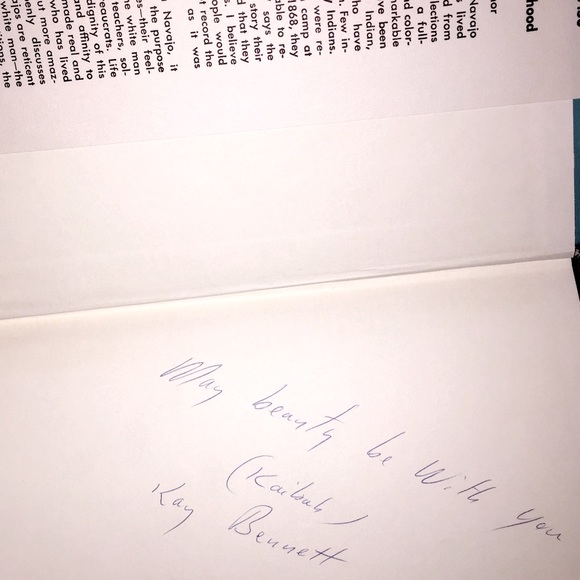 hood
Navajo
s lived
d from
llections
a full-
d color-
arkable
ve been
Indian,
ho have
. Few in-
y Indians.
were re-
camp at
1868 they
able to re-
says the
story their
d that they
. I believe
ople would
t record the
as it was
Navajo, it
h the purpose
es—their feel-
white man
teachers, sol-
reaucrats. Life
dignity of this
and affinity to
made real and
who has lived
ut more amaz-
discusses
ajos are reticent
white man—the
ons, the
May beauty be With you
(Kaibah)
Kay Bennett